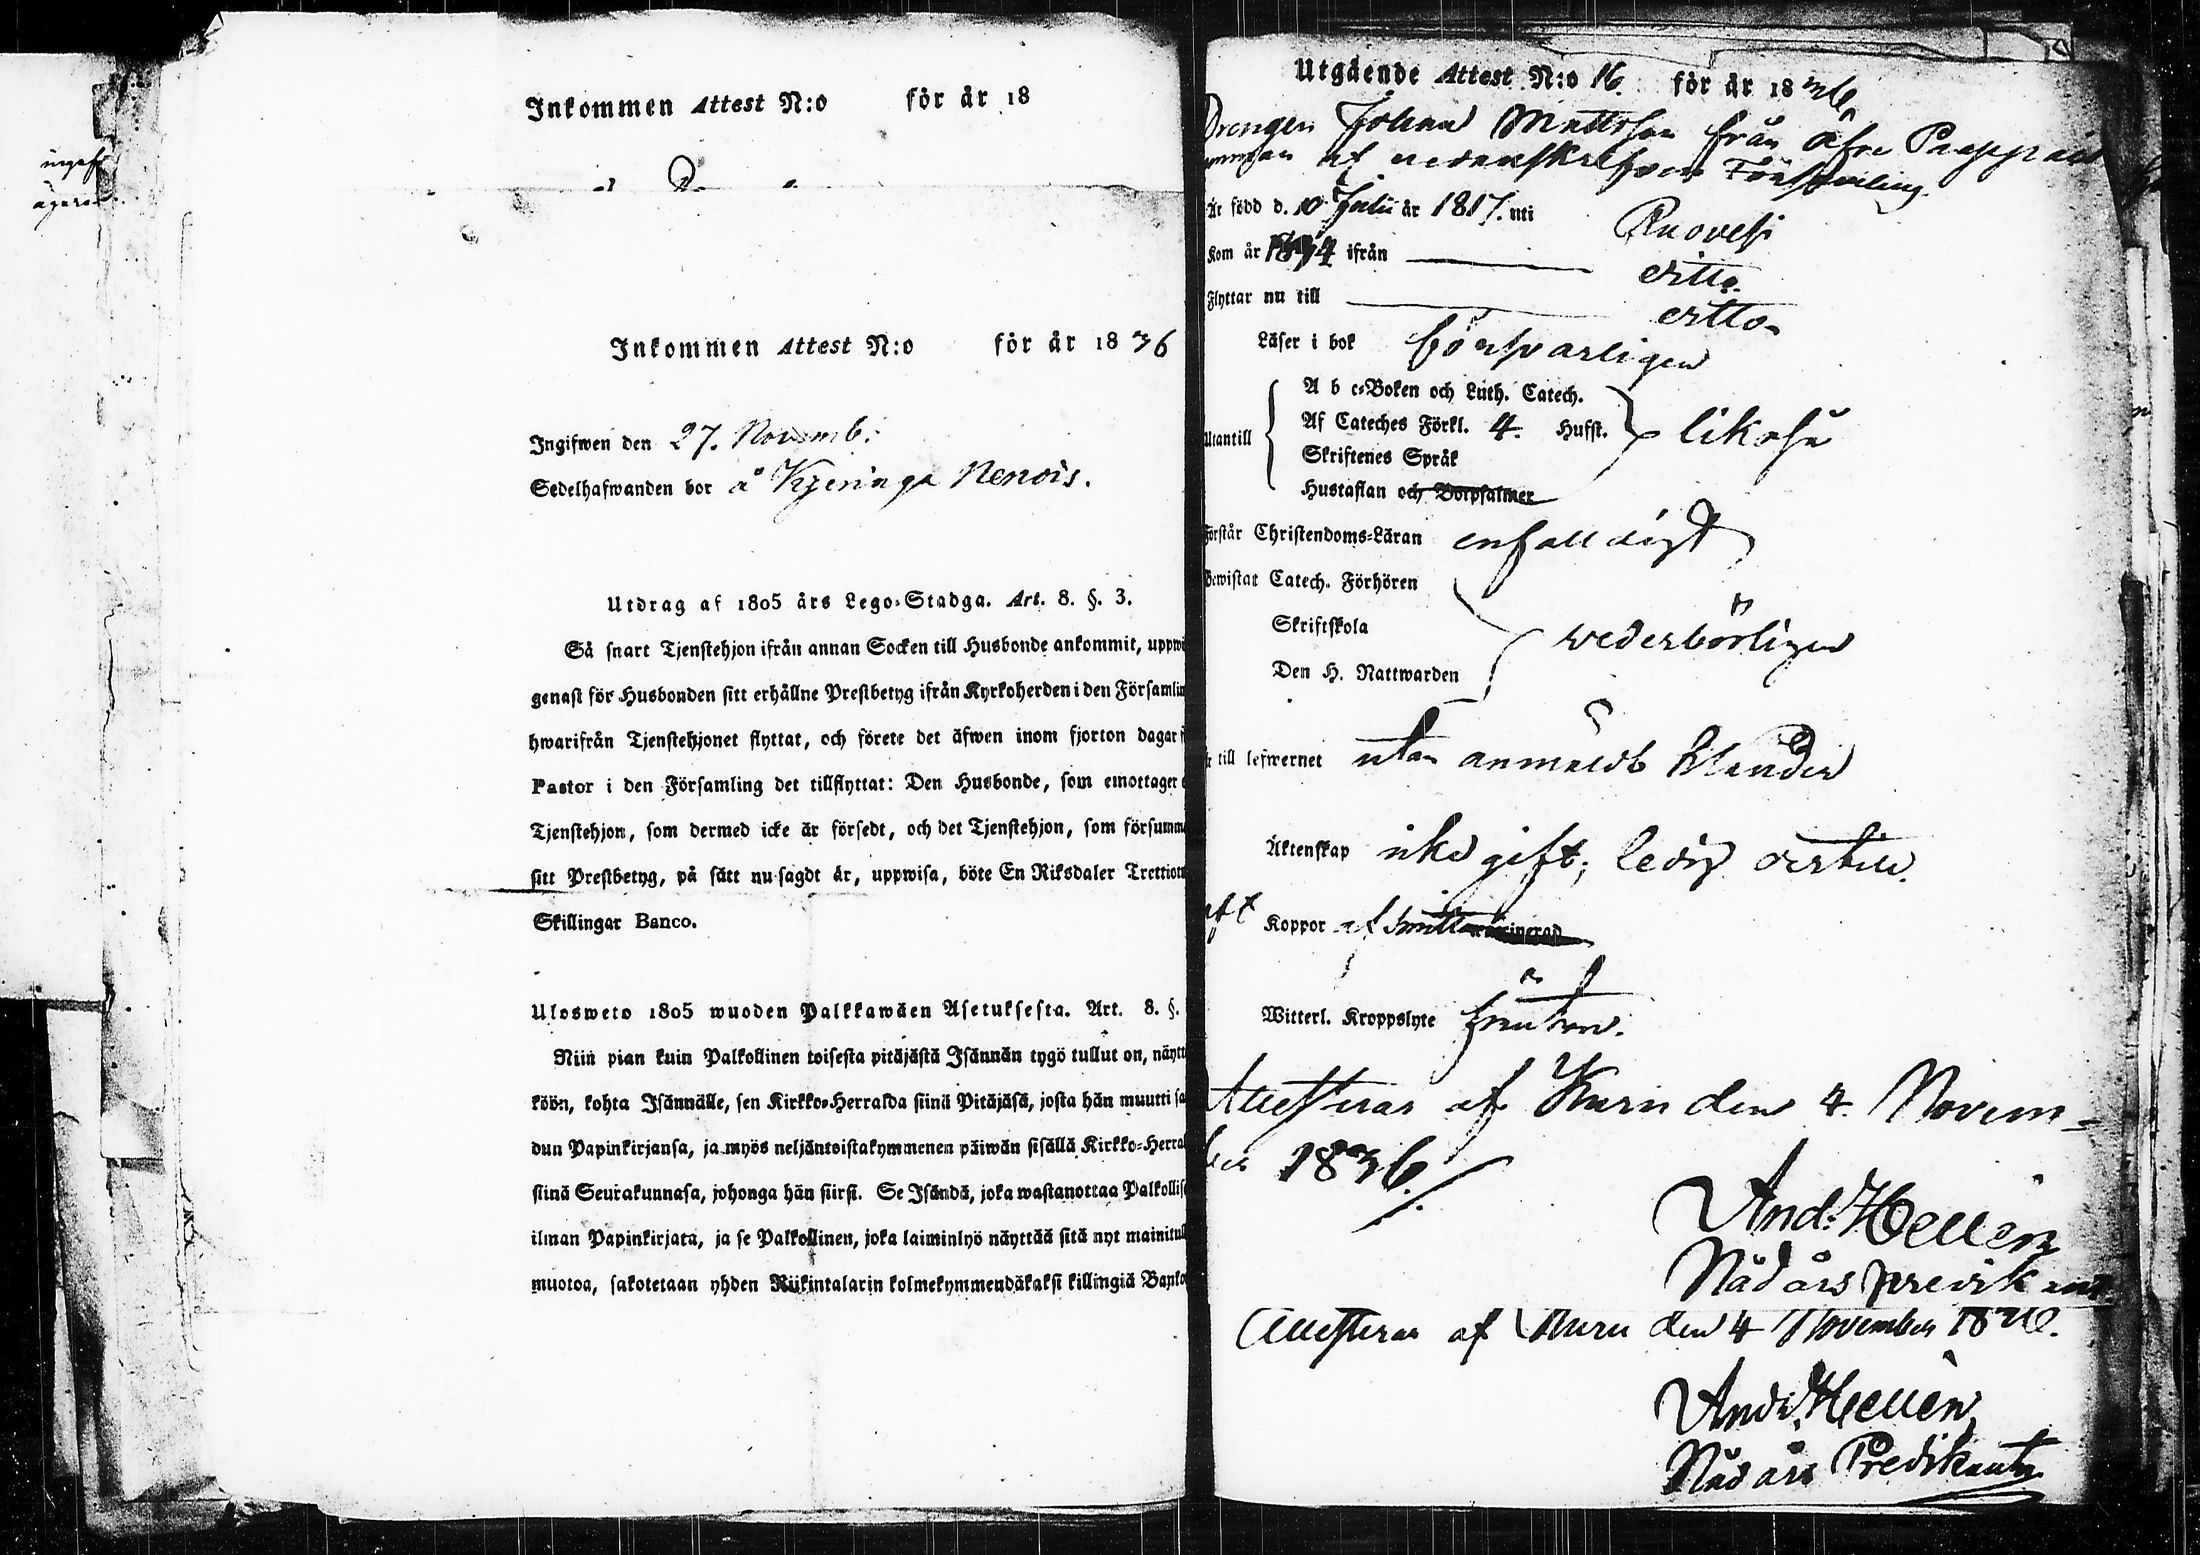 ingaf
ägare
Inkommen Attest N:o för år 18
Inkommen Attest N:o för år 1836
Ingifwen den 27. Novemb:
Sedelhafwanden bor å Kjeringa Nenois.
Utdrag af 1805 års Lego-Stadga. Art. 8. §. 3.
Så snart Tjenstehjon ifrån annan Socken till Husbonde ankommit, uppwi
genast för Husbonden sitt erhållne Prestbetyg ifrån Kyrkoherden i den Församlin
hwarifrån Tjenstehjonet flyttat, och förete det äfwen inom fjorton dagar f
Pastor i den Församling det tillflyttat: Den Husbonde, som emottager
Tjenstehjon, som dermed icke är försedt, och det Tjenstehjon, som försumm
sitt Prestbetyg, på sätt nu sagdt är, uppwisa, böte En Riksdaler Trettiotw
Skillingar Banco.
Ulosweto 1805 wuoden Palkkawäen Asetuksesta. Art. 8. §.
Niin pian kuin Palkollinen toisesta pitäjästä Isännän tygö tullut on, näytt
köön, kohta Isännälle, sen Kirkko-Herralda siinä Pitäjäsä, josta hän muutti sa
dun Papinkirjansa, ja myös neljäntoistakymmenen päiwän sisällä Kirkko-Herra
siinä Seurakunnasa, johonga hän siirsi. Se Isändä, joka wastanottaa Palkollis
ilman Papinkirjata, ja se Palkollinen, joka laiminlyö näyttää sitä nyt mainitul
muotoa, sakotetaan yhden Riikintalarin kolmekymmendäkaksi killingiä Banko
Utgående Attest N:o 16. för år 1836
Drengen Johan Mattsson från Öfre
af nedanskrefven Församling.
Är född d. 10 Julii år 1817. uti Ruovesi
Kom år 1834 ifrån ditto.
Flyttar nu till ditto.
Läser i bok försvarligen
A b c-Boken och Luth. Catech.
Utantill Af Cateches Förkl. 4. Hufst. likaså
Skriftenes Språk
Hustaflan och Botpsalmer
Förstår Christendoms-Läran enfalldigt
Bewistat Catech. Förhören
Skriftskola wederbörligen
Den H. Nattwarden
till lefwernet utan anmäldt klander
Äktenskap icke gift, ledig dertill.
haft Koppor af Smitta
Witterl. Kroppslyte förutan.
Attesteras af Kuru den 4. Novem-
ber 1836.
And: Hellén
Nådårs predikant.
Attesteras af Kuru den 4 November 1836.
And: Hellén
Nådårs Predikant